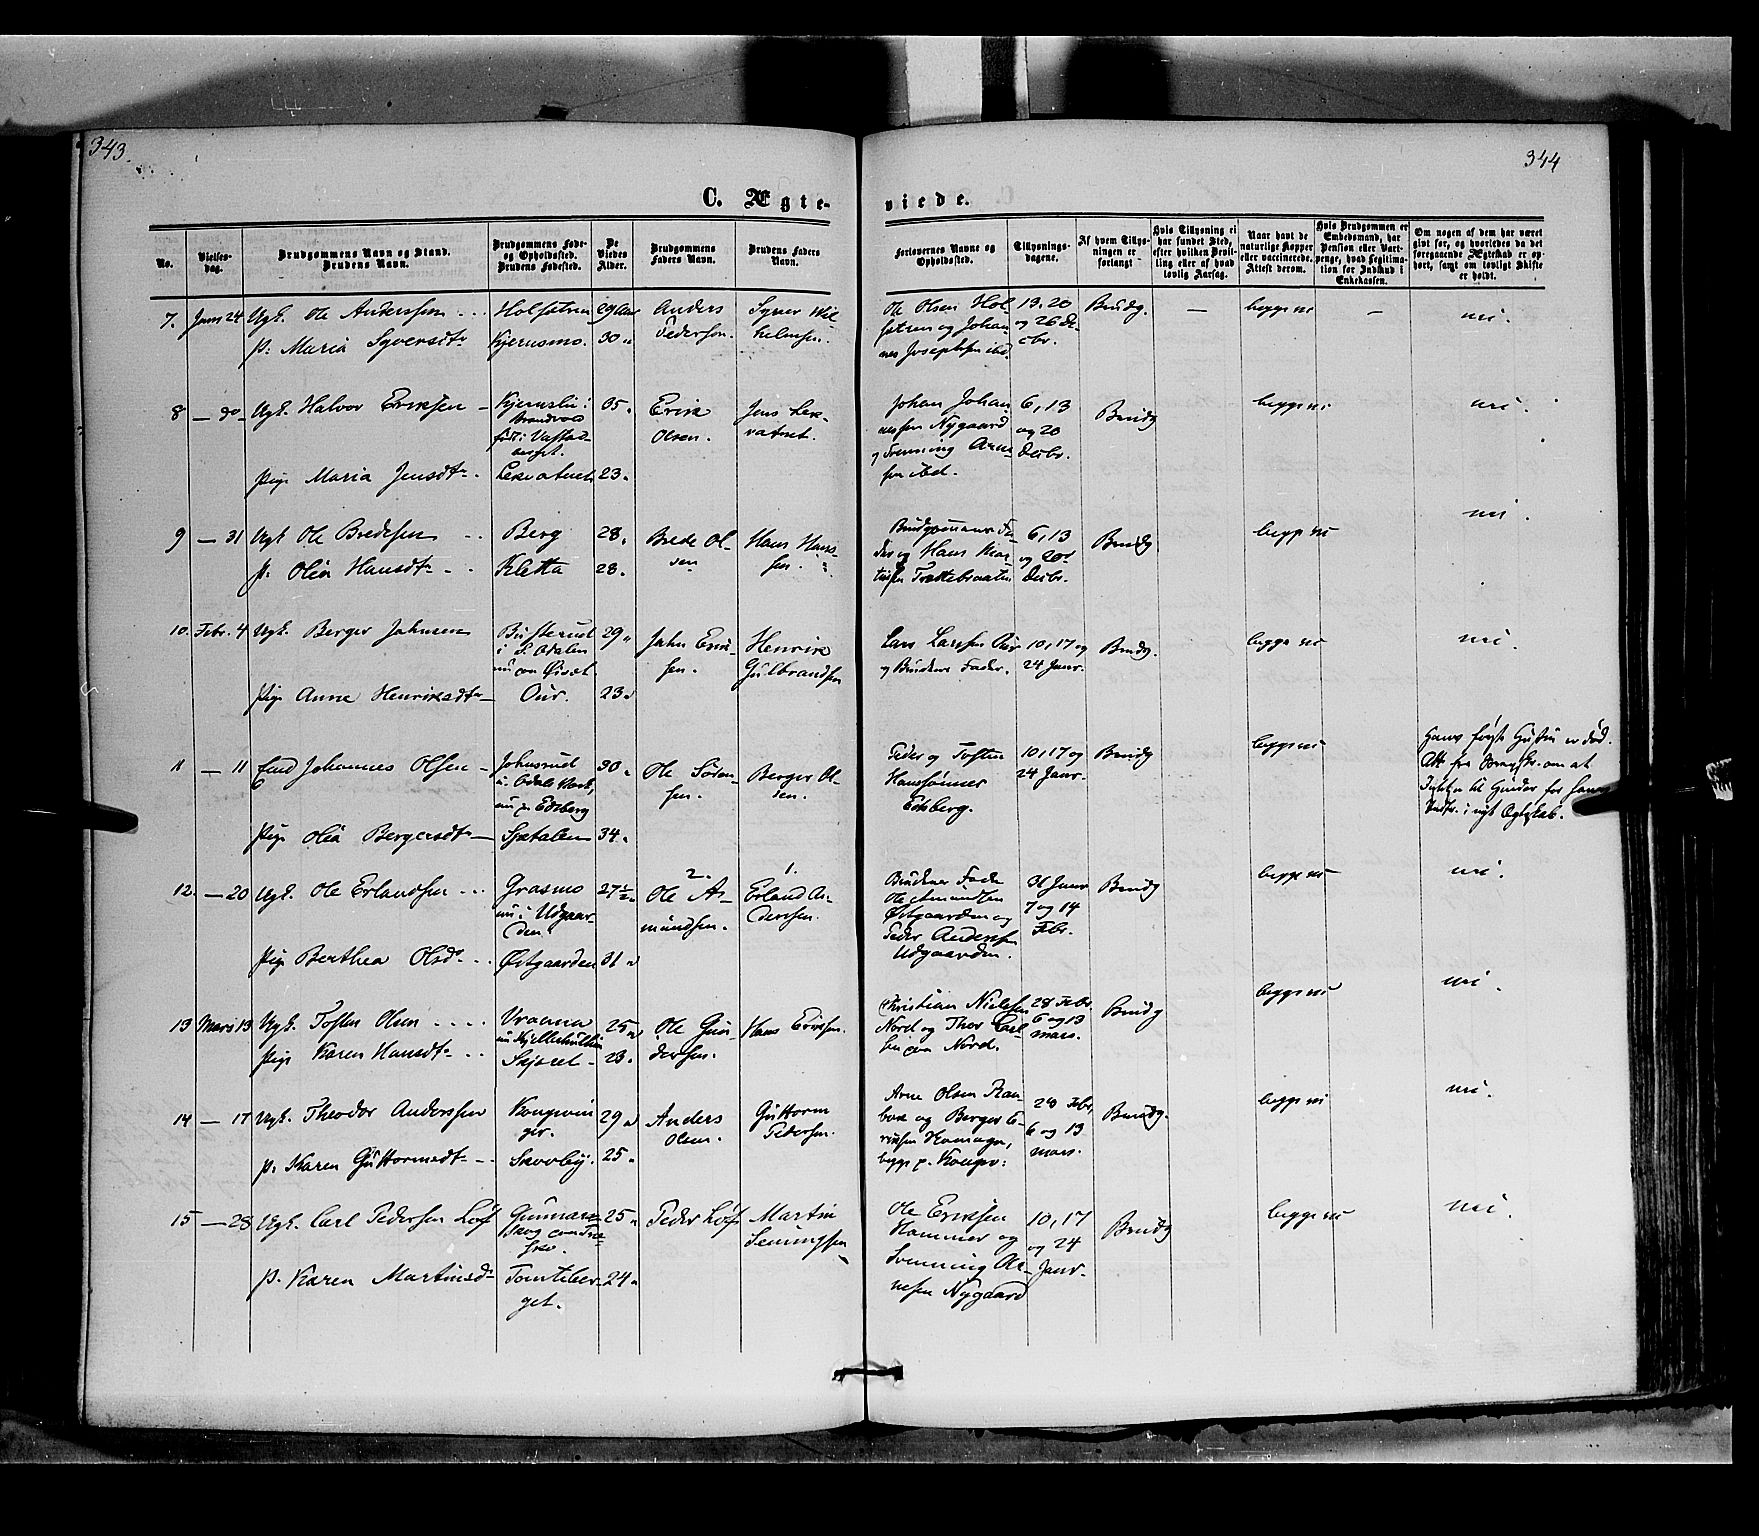 343.
344
C. Ægte-
viede.
No.
Vielses-
dag.
Brudgommens Navn og Stand.
Brudens Navn.
Brudgommens Føde-
og Opholdssted.
Brudens Fødested.
De
Viedes
Alder.
Brudgommens
Faders Navn.
Brudens Faders
Navn.
Forlovernes Navne og
Opholdssted.
Tillysnings-
dagene.
Af hvem Tillys-
ningen er
forlangt
Hvis Tillysning ei
har fundet Sted,
efter hvilken Bevil-
ling eller af hvad
lovlig Aarsag.
Naar havt de
naturlige Kopper
eller vaccinerede.
Attest derom.
Hvis Brudgommen er
Embedsmand, har
Pension eller Vart-
penge, hvad Legitima-
tion for Indskud i
Enkekassen.
Om nogen af dem har været
gift før, og hvorledes da det
foregaaende Ægteskab er op-
hørt, samt om lovligt Skifte
er holdt.
7. Janr 24 Ugk. Ole Anderssen
P. Maria Syversdtr
Holsætren
Kjerusmo.
29 Aar
30 "
Anders
Pedersen.
Syver Wil-
helmsen.
Ole Olsen Hol-
sætren og Johan-
nes Josephsen ibd.
13. 20
og 26 De-
cbr.
Brudg.
—
begge ni
—
nei.
8 — do — Ugk. Halvor Eriksen
Kjernsli i
Brandvold
født i
Pige Maria Jensdtr
Lekvatnet
35.
23.
Erik
Olsen.
Jens Lek-
vatnet.
Johan Johan-
nessen Nygaard
og Svenning Arne-
sen ibd.
6, 13
og 20
Decbr.
Brudg
begge ni
nei.
9 — 31 Ugk Ole Bredesen
P. Olea Hansdtr
Berg
Kletta
28.
28.
Brede Ol-
sen
Hans Hans-
sen.
Brudgommens Fa-
der og Hans Mar-
tinsen Trættebraaten
6, 13
og 20
Decbr.
Brudg
begge ni
nei.
10. Febr. 4 Ugk. Berger Johnsen
Pige Anne Henriksdtr
Busterud
i S. Odalen
nu paa
Our.
29 "
23 "
John Erik-
sen.
Henrik
Gulbrandsen
Lars Larssen Our
og Brudens Fader.
10, 17 og
24 Janr.
Brudg.
begge ni
nei.
11 — 11 Johannes Olsen
Pige Olea Bergersdtr
Johnsrud
Odals Værk,
nu p. Edsberg
Sætalen
30.
34.
Ole
sen.
Berger Ol-
sen.
Peder og Tosten
Hanssønner
Edsberg.
10, 17 og
24 Janr.
Brudg
begge ni
Hans første Hustru er død.
Att fra om at
Intet er til Hinder for hans
Indtr. i nyt Ægteskab.
12. — 20 Ugk. Ole Erlandsen
Pige Berthea Olsdtr
Grasmo
nu i Udgaar-
den.
Østgaarden
27½
31 "
2.
Ole A-
mundsen.
1.
Erland An-
derssen.
Brudens Fader
Ole Amundsen
Østgaarden og
Peder Andersen
Udgaarden.
31 Janr
7 og 14
Febr.
Brudg
begge ni
nei.
13 Mars 13 Ugk. Tosten Olsen
Pige Karen Hansdtr
Vraana
Skjøret
25 "
23.
Ole Gun-
dersen.
Hans Eriksen.
Christian Nielsen
Nord og Thor Carl-
sen paa Nord.
28 Febr
6 og 13
Mars.
Brudg
begge ni
nei.
14 — 17 Ugk. Theodor Anderssen
P. Karen Guttormsdtr
Kongsvin-
ger.
Skovby.
29 "
25 "
Anders
Olsen.
Guttorm
Pedersen.
Arne Olsen Ran-
bæk og Berger E-
riksen
begge p. Kongsv:
28 Febr,
6 og 13
Mars.
Brudg.
begge ni
nei.
15 — 28 Ugk. Carl Pedersen Løf
P. Karen Martinsd
Gunnars-
skog
Tomteber-
get.
25 "
24 "
Peder Løf
Martin
Semingsen
Ole Eriksen
Hammer og
Svenning Ar-
nesen Nygaard
10, 17
og 24
Janr.
Brudg
begge ni
nei.